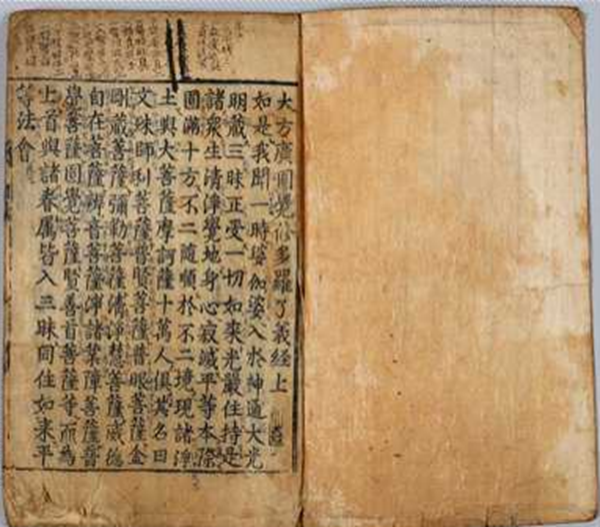 大方廣圓覺修多羅了義経上
如是我聞一時婆伽婆入於神通大光
明蔵三昧正受一切如来光嚴住持是
諸衆生清淨覺地身心寂滅平等本際
圓滿十方不二隨順於不二境現諸淨
土與大菩薩摩訶薩十萬人俱其名曰
文殊師利菩薩普賢菩薩普眼菩薩金
剛蔵菩薩彌勒菩薩清淨慧菩薩威德
自在菩薩辨音菩薩淨諸業障菩薩普
學菩薩圓覺菩薩賢善首菩薩等而為
上首與諸眷屬皆入三昧同住如来平
等法會